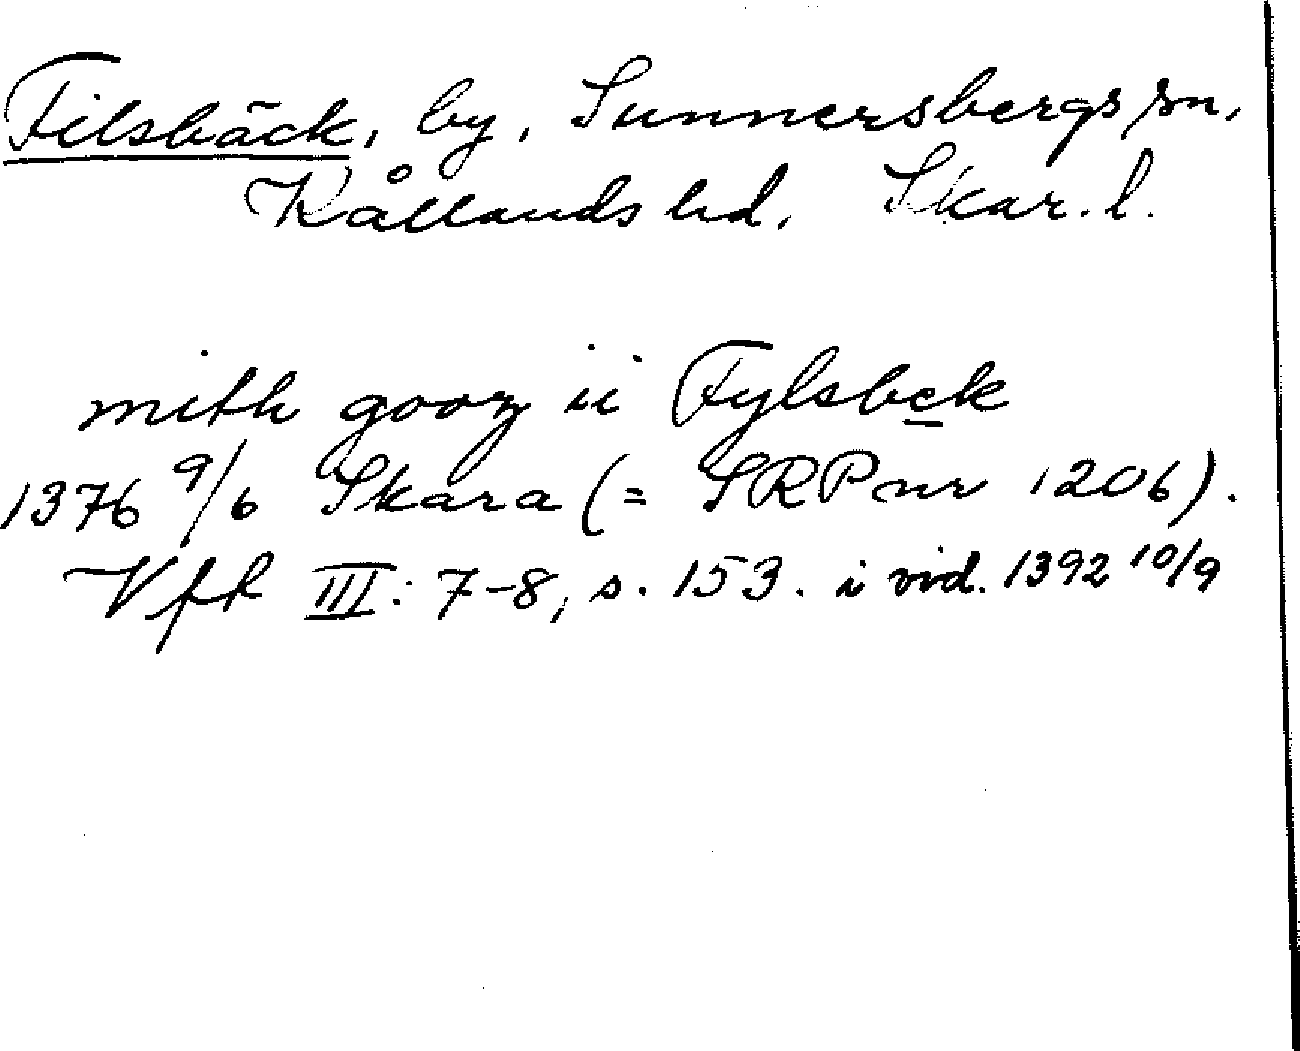 Filsbäck, by, Sunnersbergs sn,
Kållands hd. Skar. l.
mith gooz ii Fylsbek
1376 9/6 Skara (= SRP nr 1206).
Vfk III: 7-8, s. 153. i vid. 1392 10/9